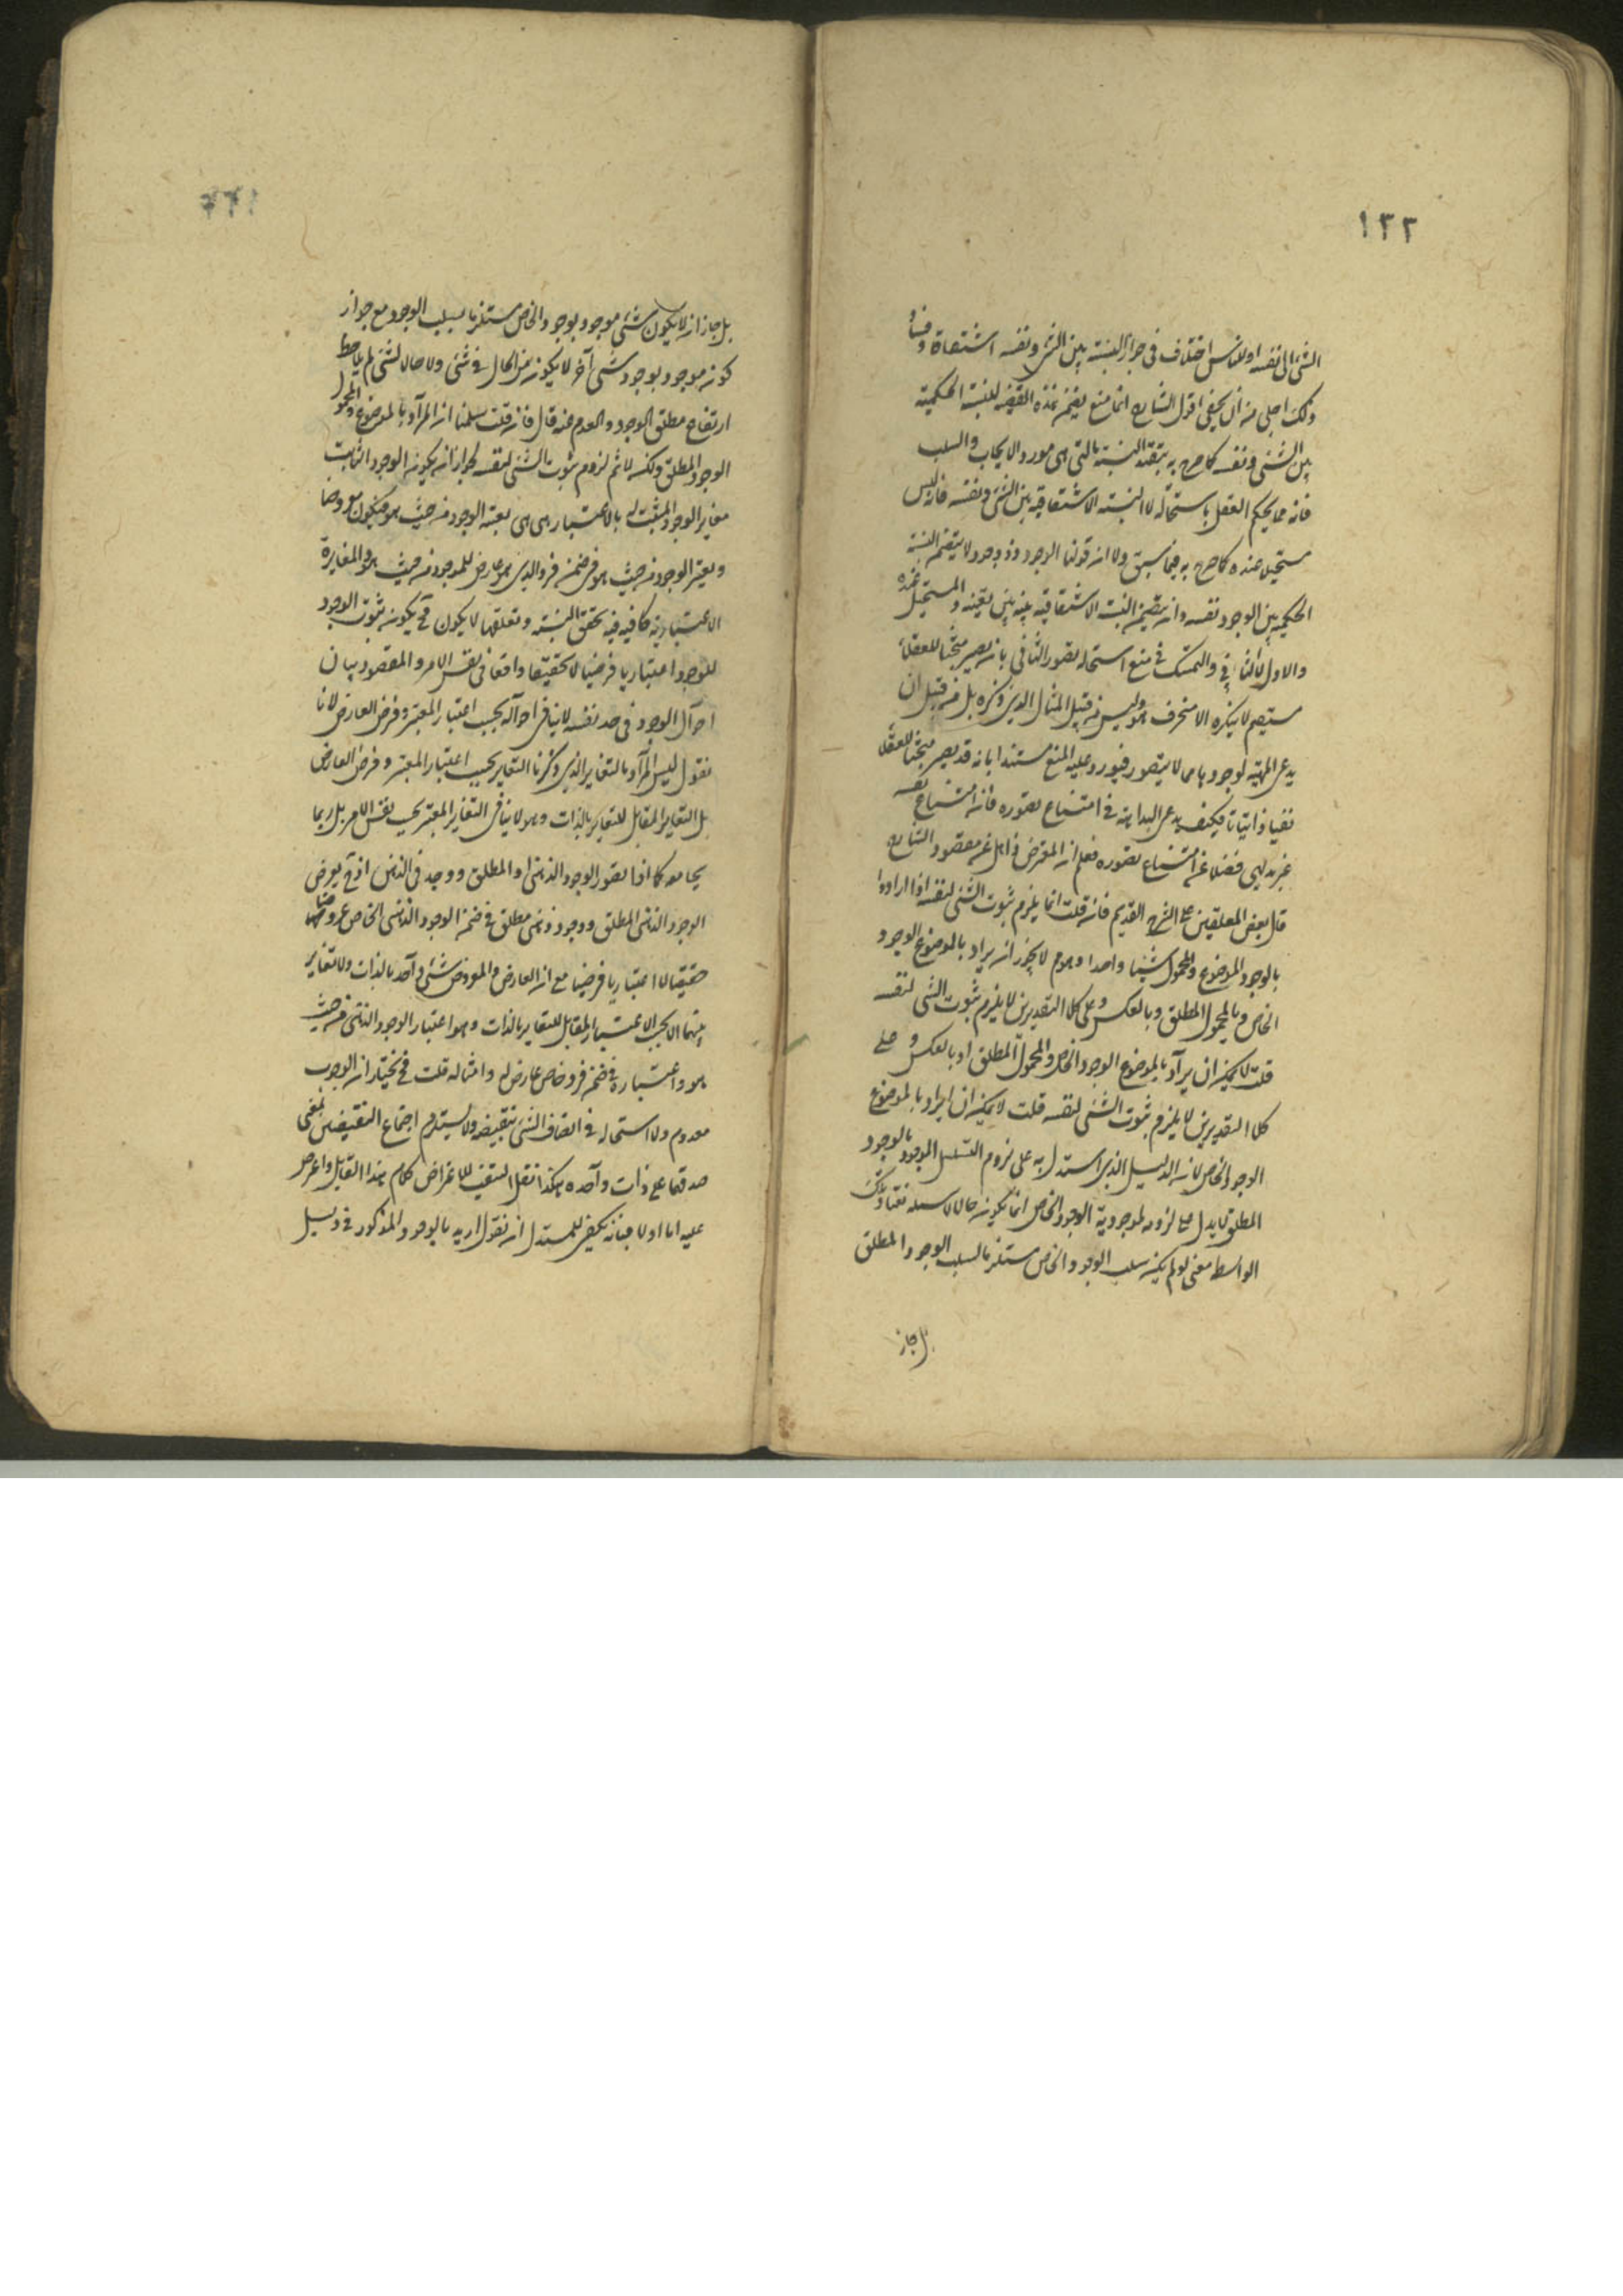 ١٣٢
الشئ الى نفسه اوللناس اختلاف فى جواز النسبة بين الشئ ونفسه اشتقاقا وفساد
ذلك اجلى من ان يخفى اقول الشارح انما منع تضمن هذه القضية للنسبة الحكمية
بين الشئ ونفسه كما صرح به بتقييد النسبة بالتى هى مورد الايجاب والسلب
فانه مما يحكم العقل باستحالته لا النسبة الاشتقاقية بين الشئ ونفسه فانه ليس
مستحيل عنده كما صرح به فيما سبق ولا ان قولنا الوجود ذو وجود لا يتضمن النسبة
الحكمية بين الوجود ونفسه وانه يتضمن النسبة الاشتقاقية بينه وبين نفسه والمستحيل عنده
والاول لا الثانى والتمسك فى منع استحالة تصور الثانى بانه يصير مبحثا للعقلاء
مستقيم لا ينكره الا منحرف وليس من قبيل المثال الذى ذكره بل من قبيل ان
يدعى المهية لوجود ما مما لا يتصور فيورد عليه المنع مستندا بانه قد يصير مبحثا للعقلاء
نفيا واثباتا فكيف يدعى البداهة فى امتناع تصوره فانه امتناع نفسه
غير بديهى فضلا عن امتناع تصوره فعلم ان المعترض ذاهل عن مقصود الشارح
قال بعض المعلقين على الشرح القديم فان قلت انما يلزم ثبوت الشئ لنفسه اذا ارادوا
بالوجود الموضوع والمحمول شيئا واحدا وهو مم لا يجوز ان يراد بالموضوع الوجود
الخاص وبالمحمول المطلق وبالعكس وعلى كلا التقديرين لا يلزم ثبوت الشئ لنفسه
قلت لا يمكن ان يراد بالموضوع الوجود الخاص والمحمول المطلق او بالعكس وعلى
كلا التقديرين لا يلزم ثبوت الشئ لنفسه قلت لا يمكن ان يراد بالموضوع
الوجود الخاص لان الدليل الذى استدل به على لزوم التسلسل الموجود بالوجود
المطلق لا يدل على لزومه لموجودية الوجود الخاص انما يكون حالا
الواسطة معنى لو لم يكن سلب الوجود الخاص مستلزما لسلب الوجود المطلق
بل جاز
بل جاز ان لا يكون شئ موجود بوجود الخاص مستلزما لسلب الوجود مع جواز
كونه موجود بوجود شئ آخر لا يكون من الحال فى شئ ولا حالا لشئ لم يلاحظ
ارتفاع مطلق الوجود والعدم عنه قال فان قلت سلمنا ان المراد بالموضوع والمحمول
الوجود المطلق ولكنه لا ثم لزوم ثبوت الشئ لنفسه لجواز ان يكون الوجود الثابت
مغاير الوجود المثبت له بالاعتبار هى يعتبر الوجود من حيث هو فيكون معروضا
ويعتبر الوجود من حيث هو فى ضمن فرد الذى هو عارض للموجود من حيث هو والمغايرة
الاعتبارية كافية فيه تحقق النسبة وتعلقها لا يكون فح يكون ثبوت الوجود
للوجود اعتباريا فرضيا لا تحقيقا واقعا فى نفس الامر والمقصود بيان
احوال الوجود فى حد نفسه لا بيان احواله بحسب اعتبار المعتبر وفرض العارض لانا
نقول ليس المراد بالتغاير الذى ذكرنا التغاير بحسب اعتبار المعتبر وفرض العارض
بل التغاير المقابل للتغاير بالذات وهو لا ينافى التغاير المعتبر بحسب نفس الامر بل ربما
يجامعه كما اذا تصور الوجود الذهنى او المطلق ووجد فى الذهن اذ ح يعرض
الوجود الذهنى المطلق ووجود ذهنى مطلق فى ضمن الوجود الذهنى الخاص عروضا
حقيقيا لا اعتباريا فرضيا مع ان العارض والمعروض شئ واحد بالذات ولا تغاير
بينهما الا بحسب الاعتبار المقابل للتغاير بالذات وهو اعتبار الوجود الذهنى من حيث
هو واعتباره فى ضمن فرد خاص عارض له وامثاله قلت فح نختار ان الوجود
معدوم ولا استحالة فى اتصاف الشئ بنقيضه ولا يستلزم اجتماع النقيضين بمعنى
صدقهما على ذات واحدة هكذا نقل كلام هذا القائل واعترض
عليه اما اولا فبانه يكفى للمستدل ان نقول اريد بالوجود المذكور فى دليل